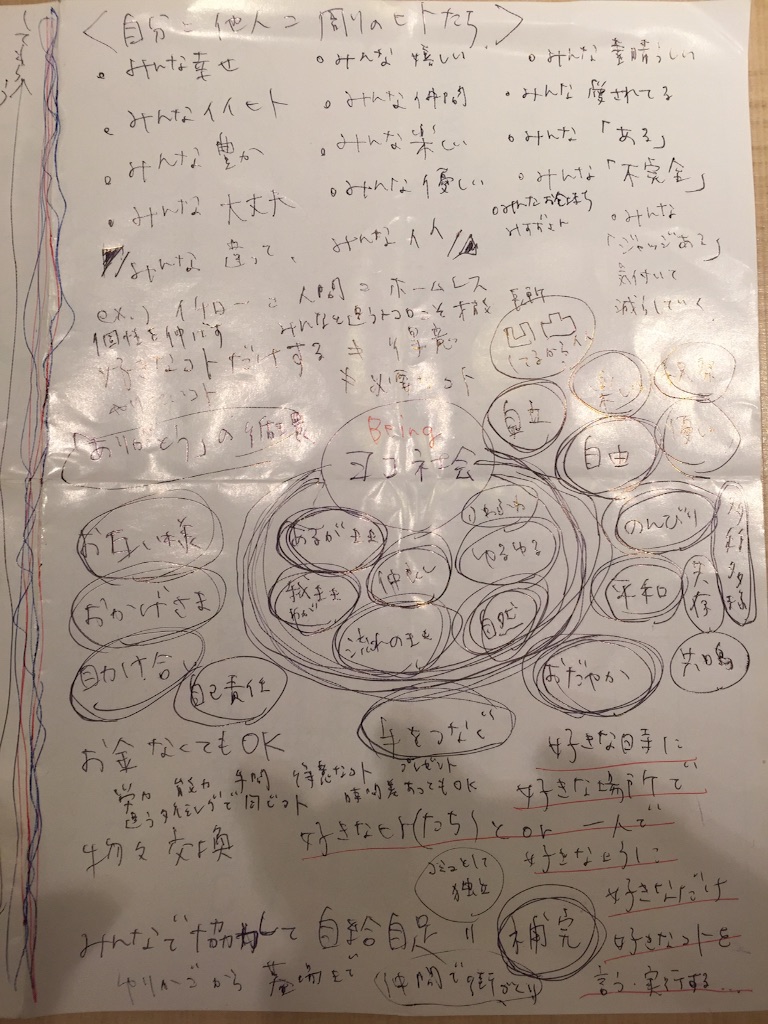 <自分=他人=周りのヒトたち>
・みんな幸せ
・みんなイイヒト
・みんな豊か
・みんな大丈夫
・みんな嬉しい
・みんな仲間
・みんな楽しい
・みんな優しい
・みんな素晴らしい
・みんな愛されてる
・みんな「ある」
・みんな「不完全」
・みんなお金持ち
・みんな
「ジャッジある」
気付いて
減らしていく
みんな違って、みんなイイ
ex.) イチロー = 人間 = ホームレス
個性を伸ばす
みんなと違うトコロこそ
好きなコトだけする ≠ 得意
「ありがとう」の循環
Being
ヨコ社会
自立
自由
楽しい
優しい
お互い様
おかげさま
助け合い
自己責任
あるがまま
我がまま
仲良し
流れのまま
ゆるゆる
自然
のんびり
平和
共存
多種多様
共鳴
おだやか
手をつなぐ
お金なくてもOK
労力 能力 手間 得意なコト プレゼント
違うタイミングで同じコト 時間差あってもOK
物々交換
好きな日時に
好きな場所で
好きなヒト(たち)と or 一人で
好きなように
好きなだけ
好きなコトを
言う・実行する…
個として
独立
みんなで協力して 自給自足 =
補完
ゆりかごから 墓場まで
(仲間で街づくり)